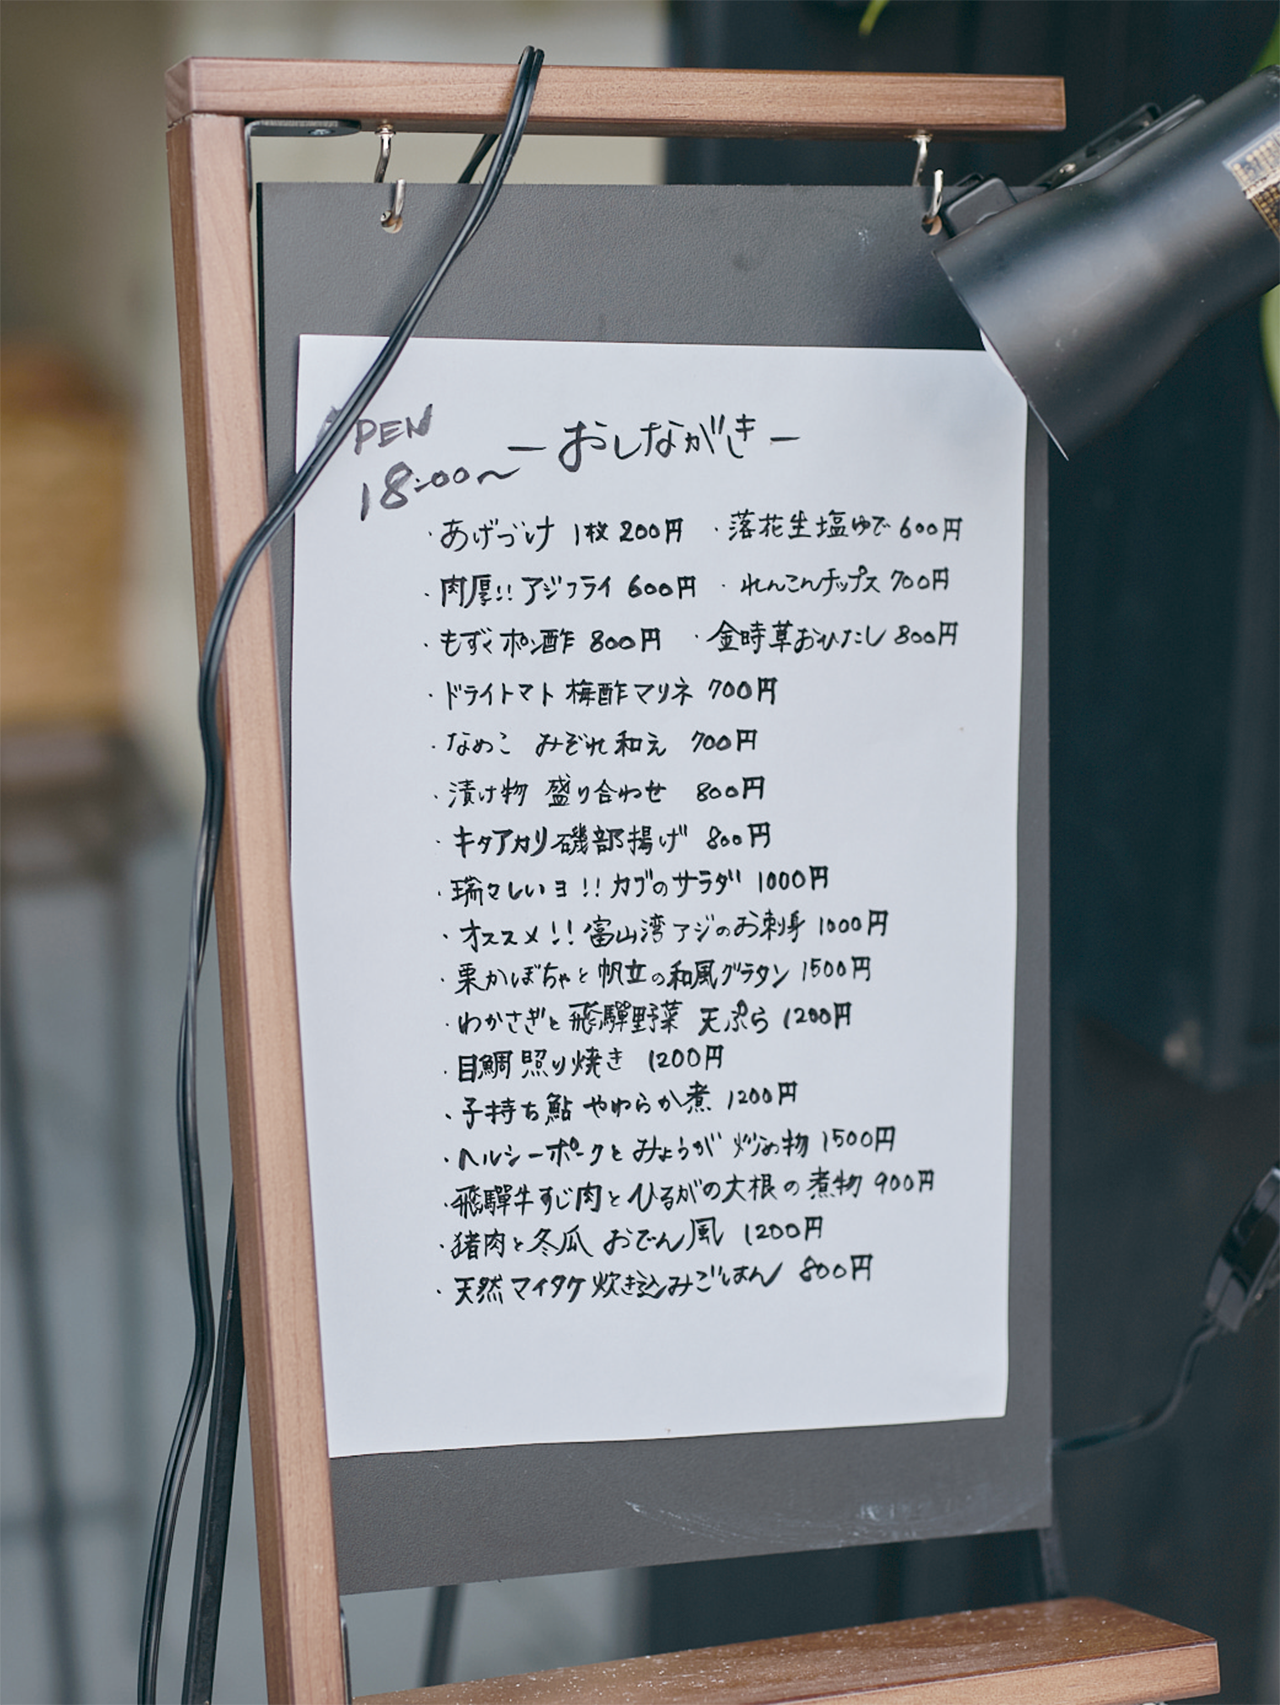 OPEN
18:00〜
ーおしながきー
・あげづけ 1枚 200円 ・落花生塩ゆで 600円
・肉厚!! アジフライ 600円 ・れんこんチップス 700円
・もずくポン酢 800円 ・金時草おひたし 800円
・ドライトマト 梅酢マリネ 700円
・なめこ みぞれ和え 700円
・漬け物 盛り合わせ 800円
・キタアカリ磯部揚げ 800円
・瑞々しいヨ!! カブのサラダ 1000円
・オススメ!! 富山湾アジのお刺身 1000円
・栗かぼちゃと帆立の和風グラタン 1500円
・わかさぎと飛騨野菜 天ぷら 1200円
・目鯛 照り焼き 1200円
・子持ち鮎 やわらか煮 1200円
・ヘルシーポークとみょうが 炒め物 1500円
・飛騨牛すじ肉とひるがの大根の煮物 900円
・猪肉と冬瓜 おでん風 1200円
・天然マイタケ炊き込みごはん 800円